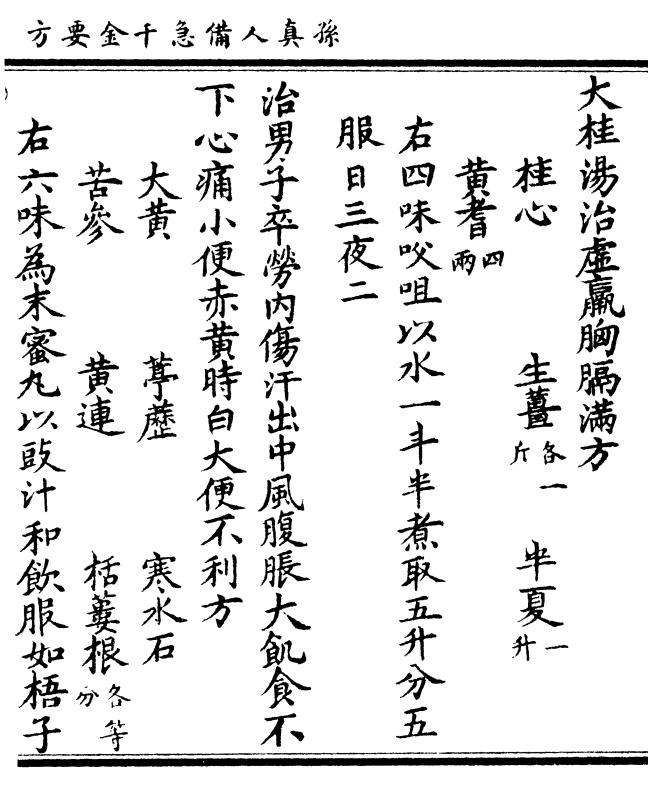 孫真人備急千金要方
大桂湯治虛羸胸膈滿方
桂心 生薑各一斤 半夏一升
黄耆四兩
右四味㕮咀以水一斗半煮取五升分五
服日三夜二
治男子卒勞内傷汗出中風腹脹大飢食不
下心痛小便赤黄時白大便不利方
大黄 葶藶 寒水石
苦參 黄連 栝蔞根各等分
右六味為末蜜丸以豉汁和飲服如梧子